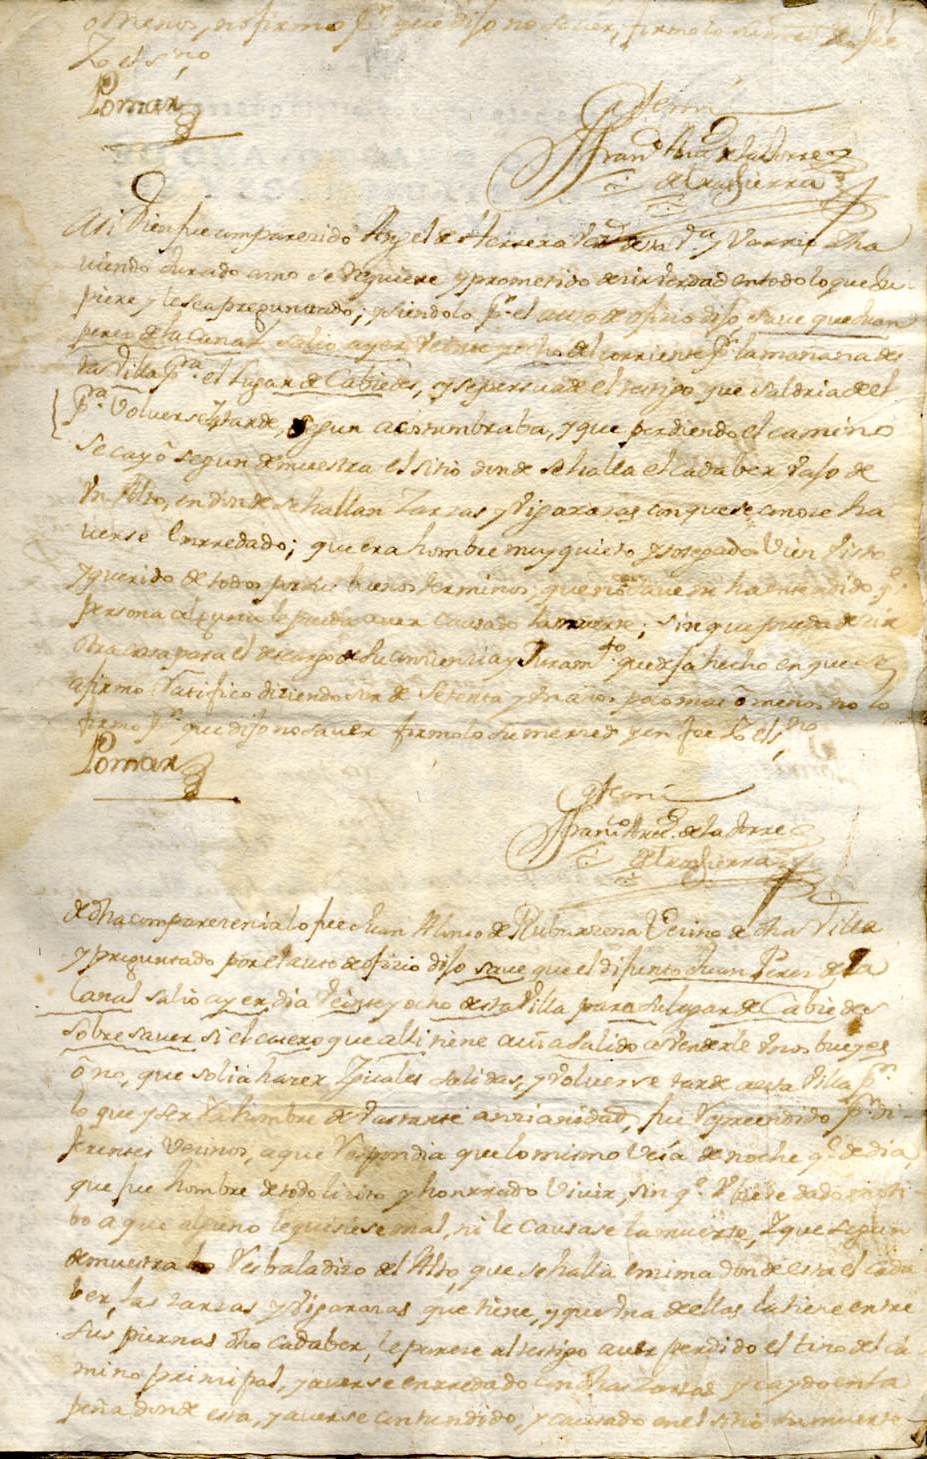 o menos, no firmo pr. que dijo no saver, firmolo su mrd
Yo el ssno
Pomar
Ante mi
Franco. de la Torre
de Trassierra
Asi Vien fue comparezido Angel de Herrera vo. de esta Va. y Varrio dha
viendo Jurado como se requiere y prometido dezir verdad en todo lo que su
piere y le sea preguntado; y siendolo pr. el auto de ofizio dijo, save que Juan
perez de la Canal salio ayer veinte y ocho del corriente pr. la mañana de es
ta Villa pra. el lugar de Cabiedes, y se persuade el testigo que saldria de el
pra. volverse tarde, segun acostumbraba, y que perdiendo el camino
se cayò segun demuestra el sitio donde se halla el cadaber vajo de
vn Alto, en donde se hallan zarzas y con que se conoze ha
verse Enrredado; que era hombre muy quieto y sosegado Vien visto
y querido de todos por sus buenos terminos; que no save ni ha entendido qe.
persona alguna le pueda aver causado la muerte; sin que pueda dezir
otra cosa para el descargo de su conzienzia y Juramto. que ha hecho en que se
afirmo Ratifico diziendo ser de setenta y vn años poco mas ô menos no lo
firmo pr. que dijo no saver firmolo su merced y en fee Yo el ssno
Pomar
Ante mi
Franco. de la Torre
de Trassierra
A dha comparezenzia lo fue Juan Alonso de Rubarzena Vezino de dha Villa
y preguntado por el auto de ofizio dijo save que el difunto Juan Perez de la
Canal salio ayer dia Veinte y ocho de esta Villa para su lugar de Cabiedes
sobre saver si el casero que alli tiene avia salido a venderle vnos bueyes
ô no, que solia hazer Yguales salidas, y volverse tarde a esta Villa pr.
lo que y ser Ya hombre de vastante anzianidad, fue Reprendido pr. di-
ferentes Vezinos, a que Respondia que lo mismo Veia de noche qe. de dia,
que fue hombre de todo lizito y honrrado Vivir, sin qe. Vbiese dado moti
bo a que alguno le quisiese mal, ni le causase la muerte, Y que segun
demuestra lo Resbaladizo del Alto, que se halla enzima donde esta el cada
ber, las zarzas y que tiene, y que vna de ellas la tiene entre
sus piernas dho cadaber, le pareze al testigo aver perdido el tino del ca
mino prinzipal, y averse enrredado en dhas zarzas y caydo en la
peña donde esta, y averse contundido, y causado en el sitio su muerte